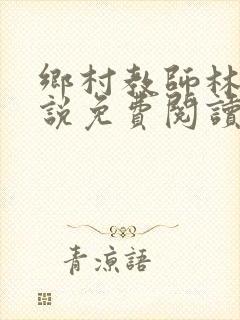 鄉村教師林
説免費閱讀
青涼語